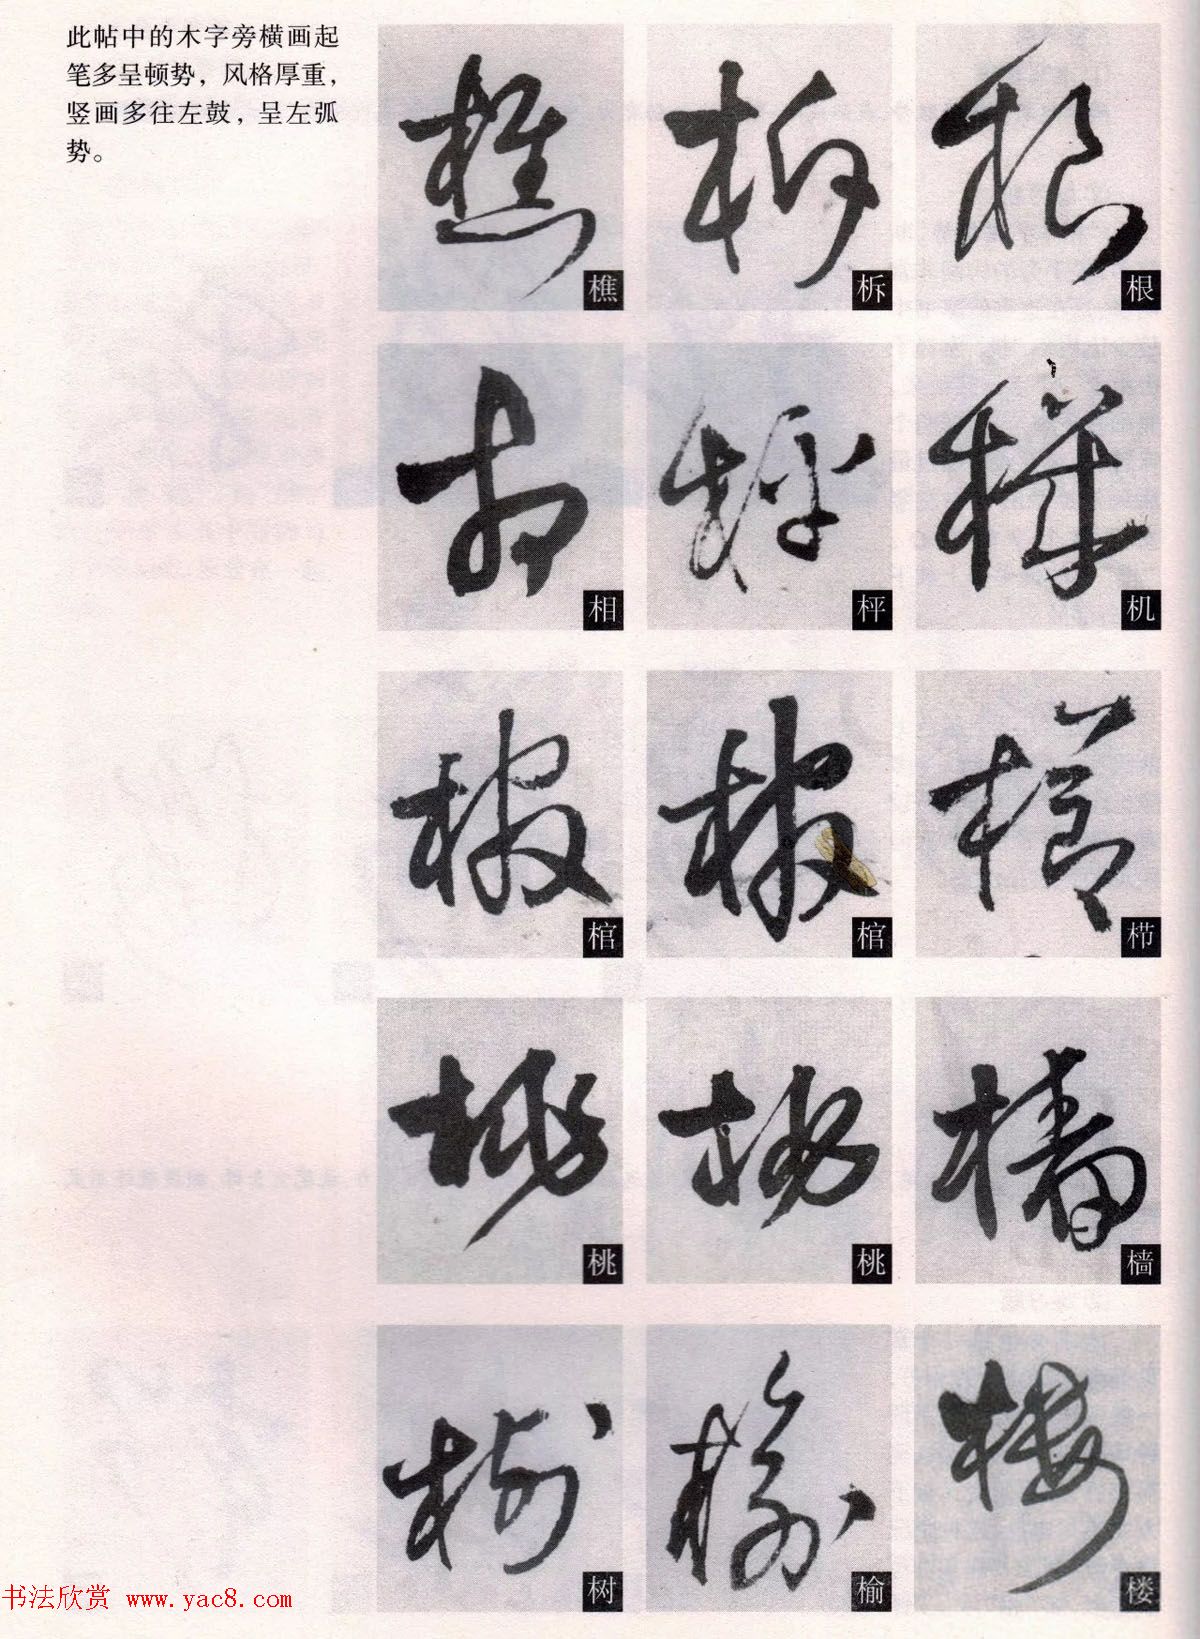 此帖中的木字旁横画起
笔多呈顿势，风格厚重，
竖画多往左鼓，呈左弧
势。
樵 柝 根
相 枰 机
棺 棺 栉
桃 桃 樯
树 榆 楼
书法欣赏 www.yac8.com